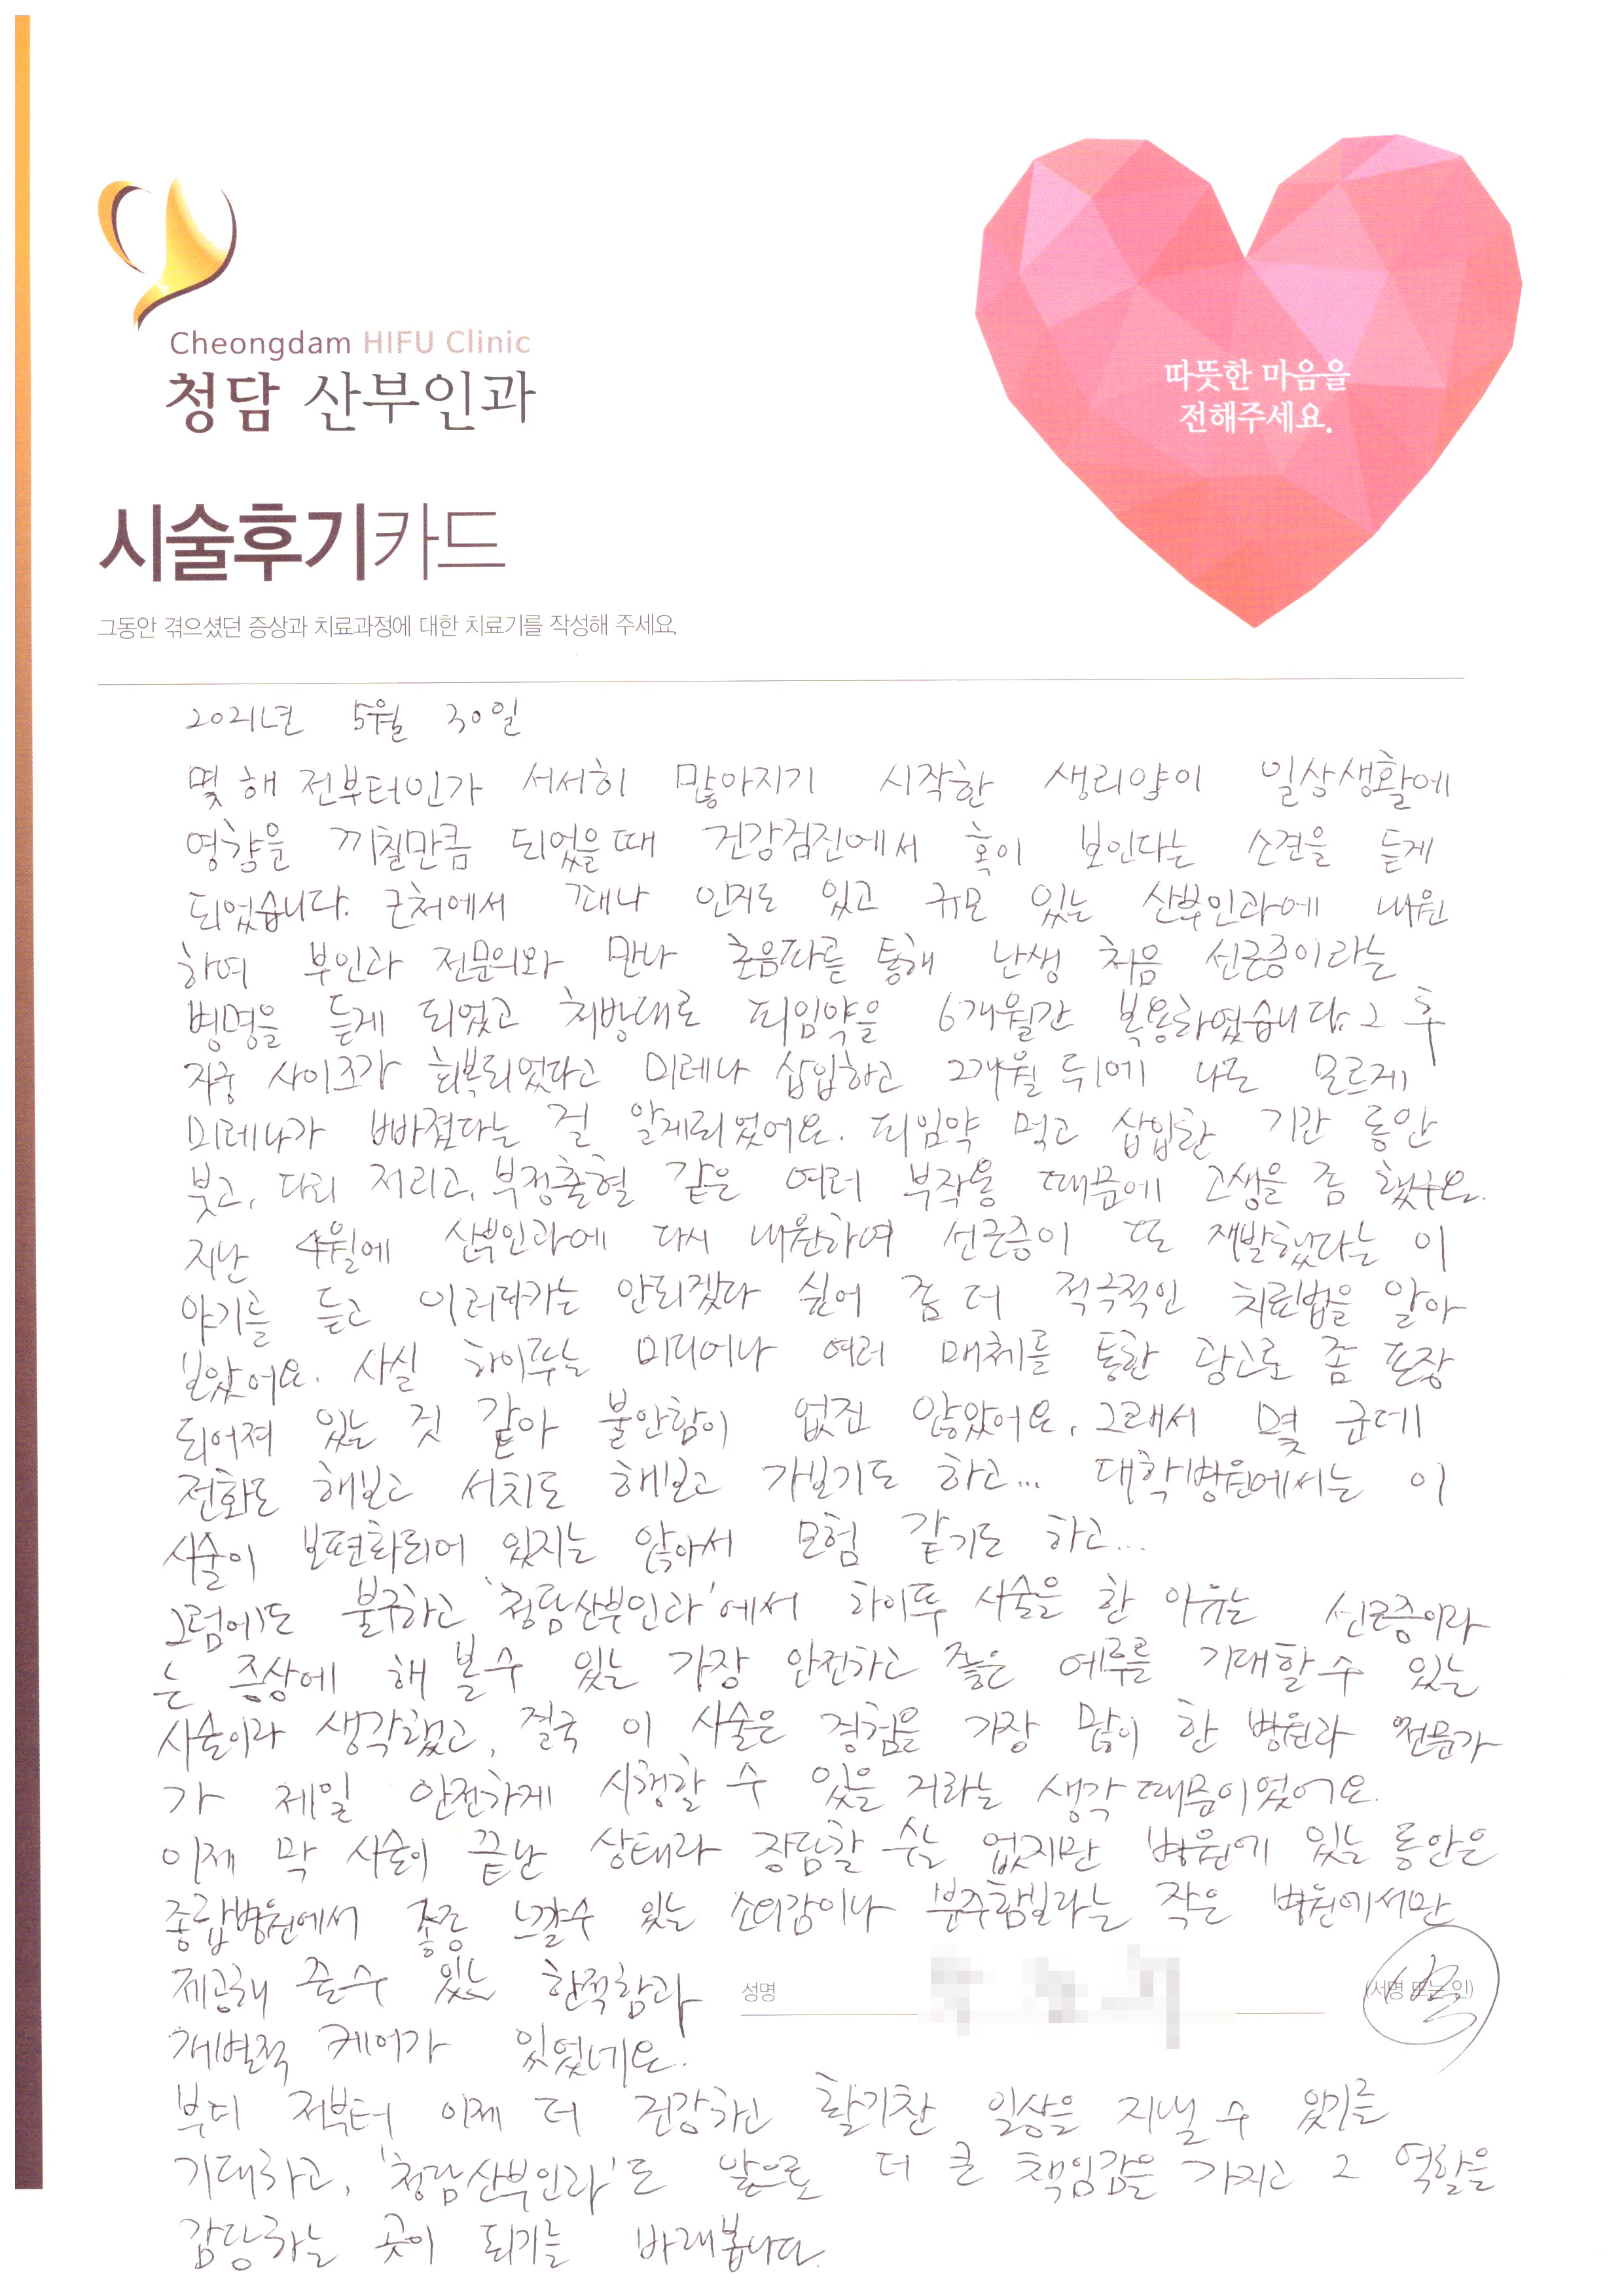 Cheongdam HIFU Clinic
청담 산부인과
따뜻한 마음을
전해주세요.
시술후기카드
그동안 겪으셨던 증상과 치료과정에 대한 치료기를 작성해 주세요.
2021년 5월 30일
몇 해 전부터인가 서서히 많아지기 시작한 생리양이 일상생활에
영향을 끼칠만큼 되었을때 건강검진에서 혹이 보인다는 소견을 듣게
되었습니다. 근처에서 꽤나 인지도 있고 규모 있는 산부인과에 내원
하여 부인과 전문의와 만나 초음파를 통해 난생 처음 선근증이라는
병명을 듣게 되었고 처방대로 피임약을 6개월간 복용하였습니다. 그 후
자궁 사이즈가 회복되었다고 미레나 삽입하고 2개월 뒤에 나도 모르게
미레나가 빠졌다는 걸 알게되었어요. 피임약 먹고 삽입한 기간 동안
붓고, 다리 저리고, 부정출혈 같은 여러 부작용 때문에 고생을 좀 했구요.
지난 4월에 산부인과에 다시 내원하여 선근증이 또 재발했다는 이
야기를 듣고 이러다가는 안되겠다 싶어 좀 더 적극적인 치료법을 알아
보았어요. 사실 하이푸는 미디어나 여러 매체를 통한 광고로 좀 포장
되어져 있는 것 같아 불안함이 없진 않았어요. 그래서 몇 군데
전화도 해보고 서치도 해보고 가보기도 하고... 대학병원에서는 이
시술이 보편화되어 있지는 않아서 모험 같기도 하고...
그럼에도 불구하고 '청담산부인과'에서 하이푸 시술을 한 이유는 선근증이라
는 증상에 해 볼수 있는 가장 안전하고 좋은 예후를 기대할수 있는
시술이라 생각했고, 결국 이 시술은 경험을 가장 많이 한 병원과 전문가
가 제일 안전하게 시행할 수 있을 거라는 생각 때문이었어요.
이제 막 시술이 끝난 상태라 장담할 수는 없지만 병원에 있는 동안은
종합병원에서 종종 느낄수 있는 소외감이나 분주함보다는 작은 병원에서만
제공해 줄수 있는 한적함과 성명 (서명 또는 인)
개별적 케어가 있었네요.
부디 저부터 이제 더 건강하고 활기찬 일상을 지낼 수 있기를
기대하고, '청담산부인과'도 앞으로 더 큰 책임감을 가지고 그 역할을
감당하는 곳이 되기를 바래봅니다.